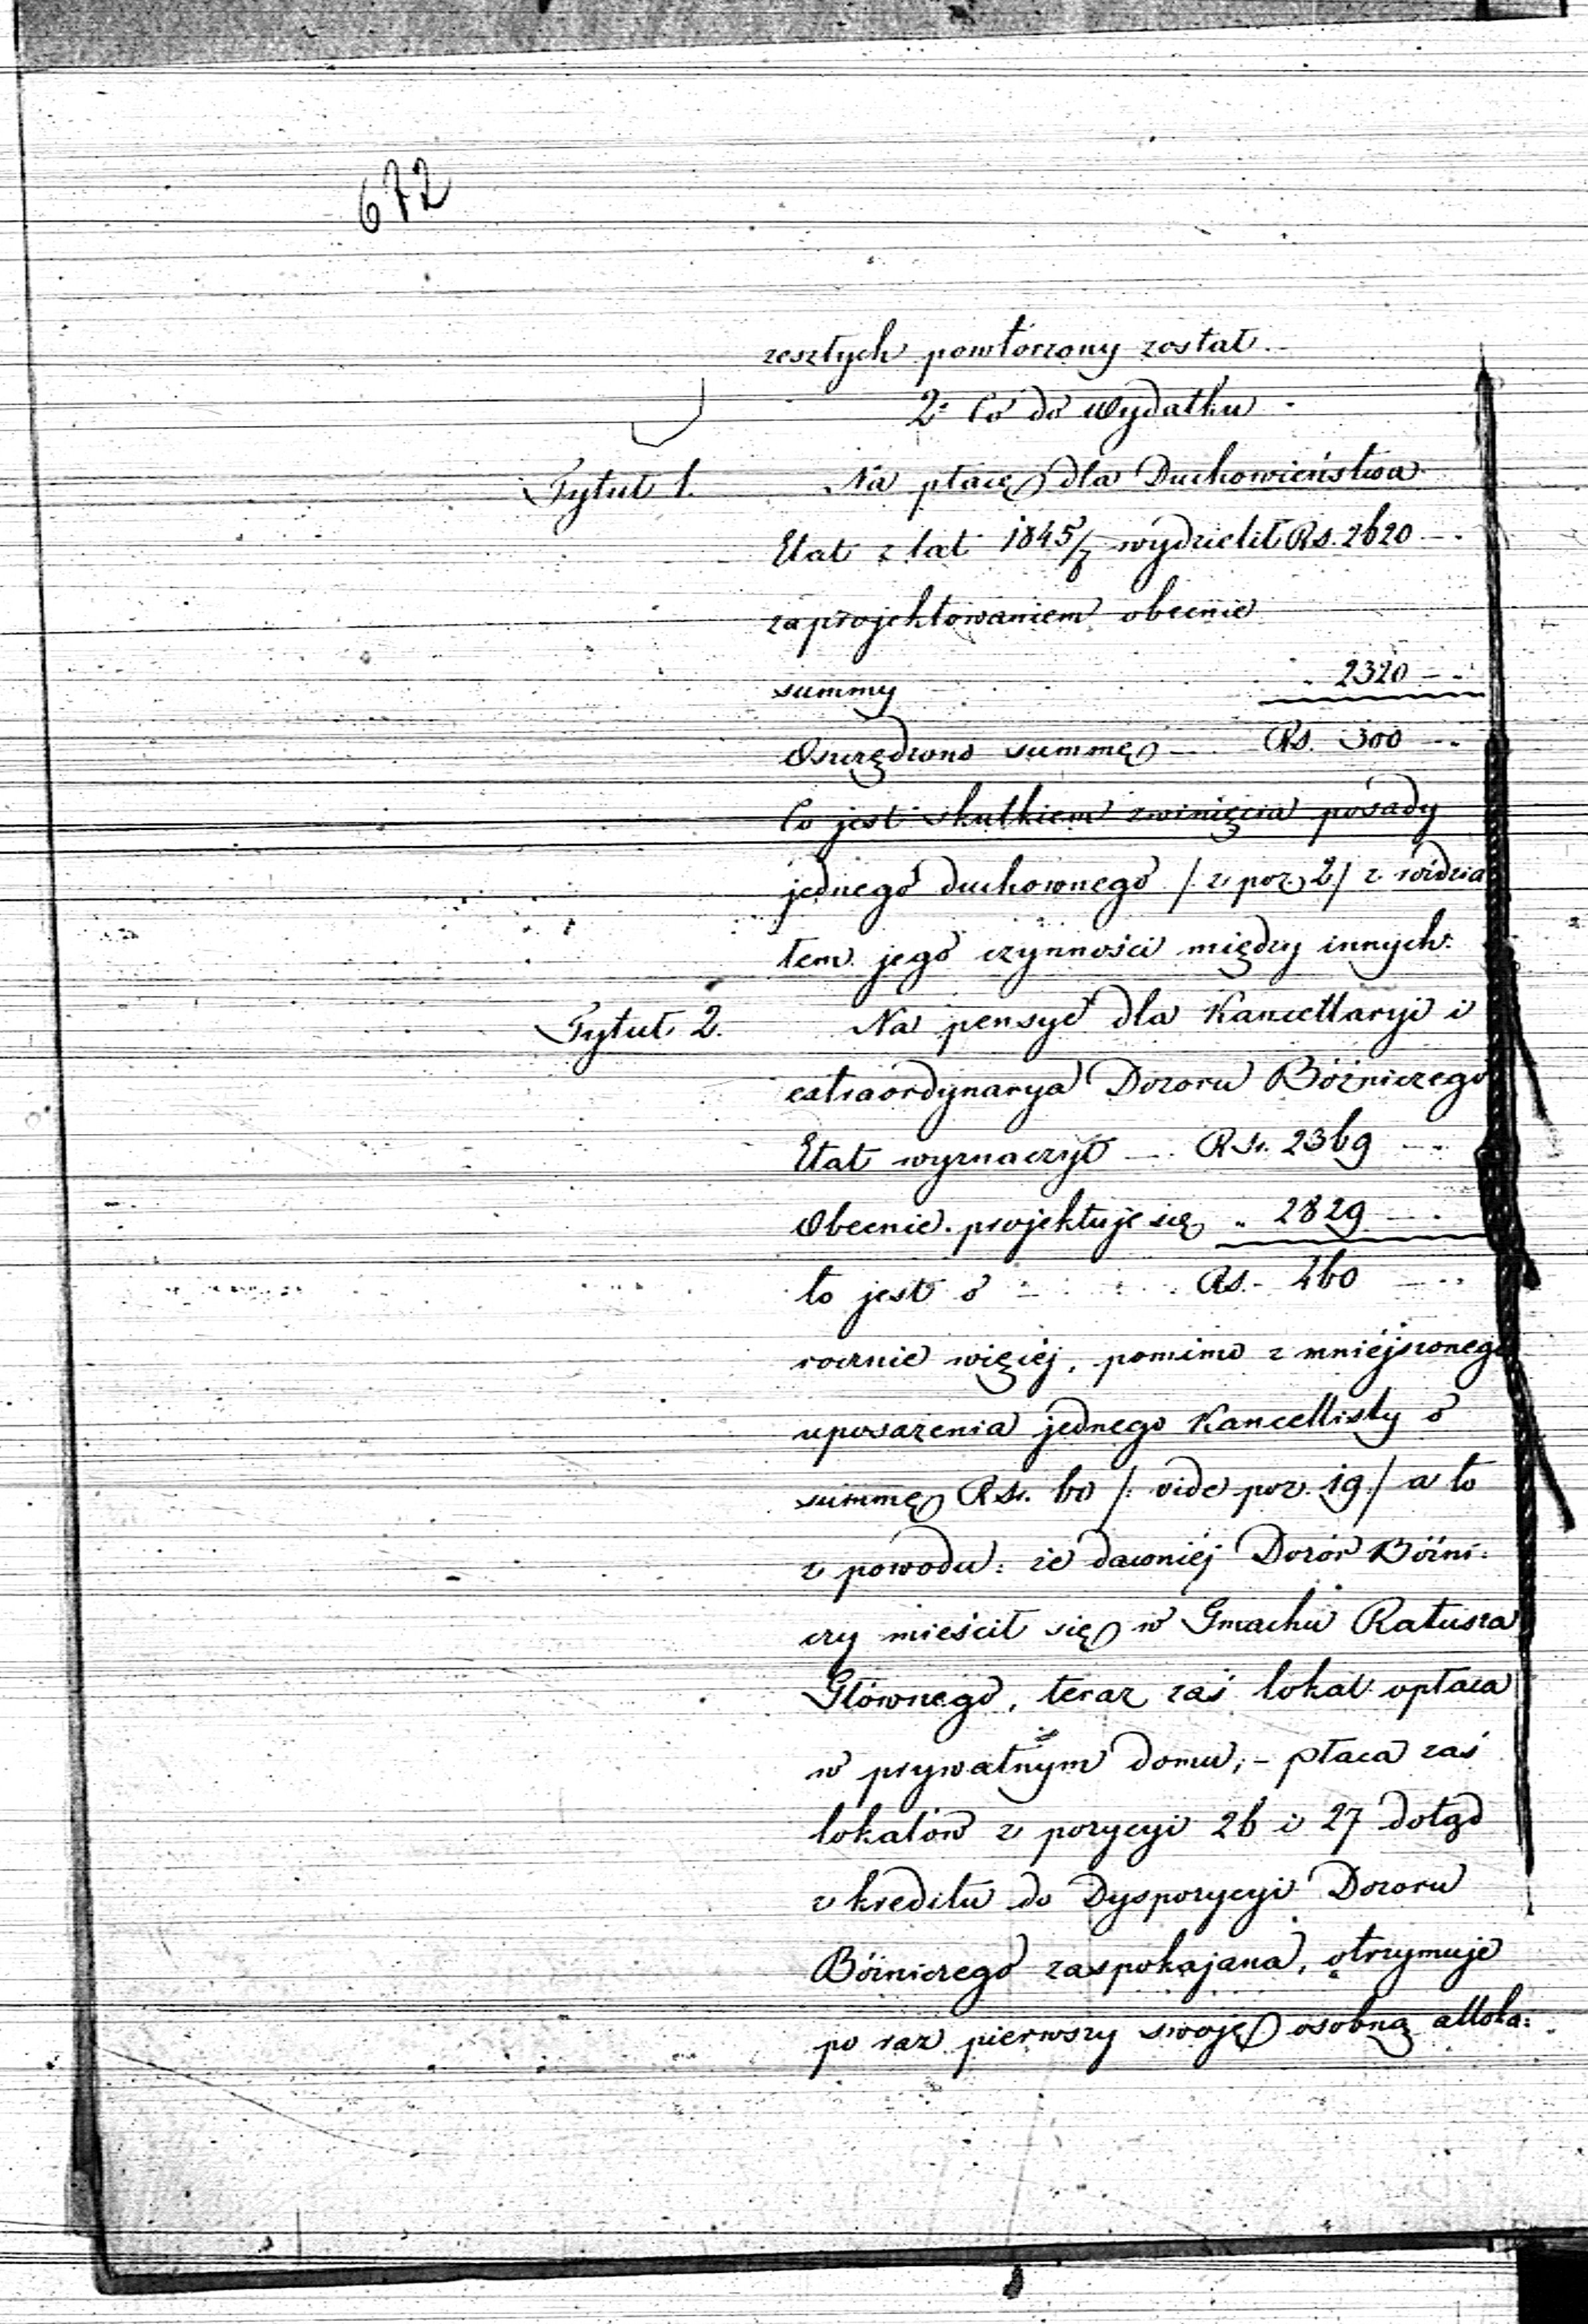 672
zeszłych powtórzony został.-
2° Co do Wydatku -
Tytuł 1. Na płacę dla Duchowieństwa
Etat z lat 1845/7 wydzielił Rs. 2620 - -
zaprojektowaniem obecnie
summy " 2320 - -
Oszczędzono summę - Rs. 300 - -
Co jest skutkiem zwinięcia posady
jednego duchownego /z poz. 2/ z rózdzia
łem jego czynności między innych.
Tytuł 2. Na pensye dla Kancellaryi i
extraordynarya Dozoru Bóźniczego
Etat wyznaczył - Rs. 2369 - -
Obecnie projektuje się " 2829 - -
to jest o - Rs. 460 - -
rocznie więcéj, pomimo zmniéjszonego
uposażenia jednego Kancellisty o
summę Rs. 60 /: vide poz. 19 / a to
z powodu: że dawniéj Dozór Bóźni:
czy mieścił się w Gmachu Ratusza
Głównego, teraz zaś lokal opłaca
w prywatnym domu; - płaca zaś
lokalów z pozycyi 26 i 27 dotąd
z kreditu do Dyspozycyi Dozoru
Bóźniczego zaspokajana, otrzymuje
po raz pierwszy swoję osobną alloka: